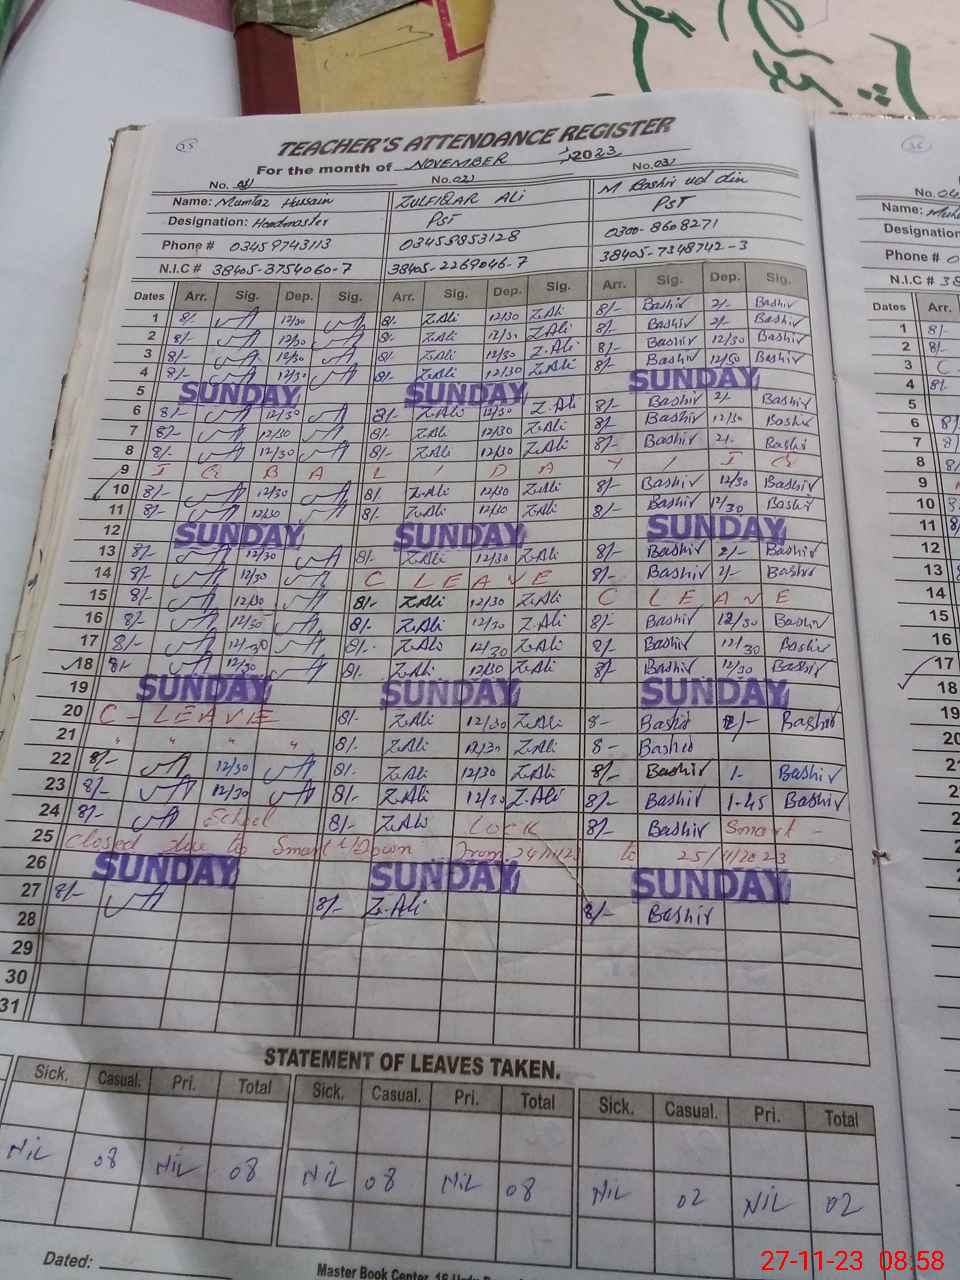 35
TEACHER'S ATTENDANCE REGISTER
For the month of NOVEMBER 2023
No. 01 No. 02 No. 03
Name: Mumtaz Hussain ZULFIQAR ALI M Bashir ud din
Designation: Headmaster PST PST
Phone # 03459743113 03458853128 0300-8608271
N.I.C # 38405-3754060-7 38405-2269046-7 38405-7348742-3
Dates Arr. Sig. Dep. Sig. Arr. Sig. Dep. Sig. Arr. Sig. Dep. Sig.
1 8/- 12/30 8/- Z.Ali 12/30 Z.Ali 8/- Bashir 2/- Bashir
2 8/- 12/30 8/- Z.Ali 12/30 Z.Ali 8/- Bashir 2/- Bashir
3 8/- 12/30 8/- Z.Ali 12/30 Z.Ali 8/- Bashir 12/30 Bashir
4 8/- 12/30 8/- Z.Ali 12/30 Z.Ali 8/- Bashir 12/30 Bashir
5 SUNDAY SUNDAY SUNDAY
6 8/- 12/30 8/- Z.Ali 12/30 Z.Ali 8/- Bashir 2/- Bashir
7 8/- 12/30 8/- Z.Ali 12/30 Z.Ali 8/- Bashir 12/30 Bashir
8 8/- 12/30 8/- Z.Ali 12/30 Z.Ali 8/- Bashir 2/- Bashir
9 I Q B A L D A Y
10 8/- 12/30 8/- Z.Ali 12/30 Z.Ali 8/- Bashir 12/30 Bashir
11 8/- 12/30 8/- Z.Ali 12/30 Z.Ali 8/- Bashir 12/30 Bashir
12 SUNDAY SUNDAY SUNDAY
13 8/- 12/30 8/- Z.Ali 12/30 Z.Ali 8/- Bashir 2/- Bashir
14 8/- 12/30 C LEAVE 8/- Bashir 2/- Bashir
15 8/- 12/30 8/- Z.Ali 12/30 Z.Ali C LEAVE
16 8/- 12/30 8/- Z.Ali 12/30 Z.Ali 8/- Bashir 12/30 Bashir
17 8/- 12/30 8/- Z.Ali 12/30 Z.Ali 8/- Bashir 12/30 Bashir
18 8/- 12/30 8/- Z.Ali 12/30 Z.Ali 8/- Bashir 12/30 Bashir
19 SUNDAY SUNDAY SUNDAY
20 C - LEAVE 8/- Z.Ali 12/30 Z.Ali 8- Bashir 2/- Bashir
21 " " " " 8/- Z.Ali 12/30 Z.Ali 8- Bashir
22 8/- 12/30 8/- Z.Ali 12/30 Z.Ali 8/- Bashir 1- Bashir
23 8/- 12/30 8/- Z.Ali 12/30 Z.Ali 8/- Bashir 1-45 Bashir
24 8/- School 8/- Z.Ali LOCK 8/- Bashir Smart -
25 closed due to Smart L/Down from 24/11/23 to 25/11/2023
26 SUNDAY SUNDAY SUNDAY
27 8/- 8/- Z.Ali 8/- Bashir
28
29
30
31
STATEMENT OF LEAVES TAKEN.
Sick. Casual. Pri. Total Sick. Casual. Pri. Total Sick. Casual. Pri. Total
NIL 08 NIL 08 NIL 08 NIL 08 NIL 02 NIL 02
Dated:
Master Book Center,
36
No. 04
Name:
Designation
Phone #
N.I.C # 38
Dates Arr.
1 8/-
2 8/-
3 C
4 8/-
5
6 8/-
7 8/-
8
9
10
11
12
13
14
15
16
17
18
19
20
27-11-23 08:58